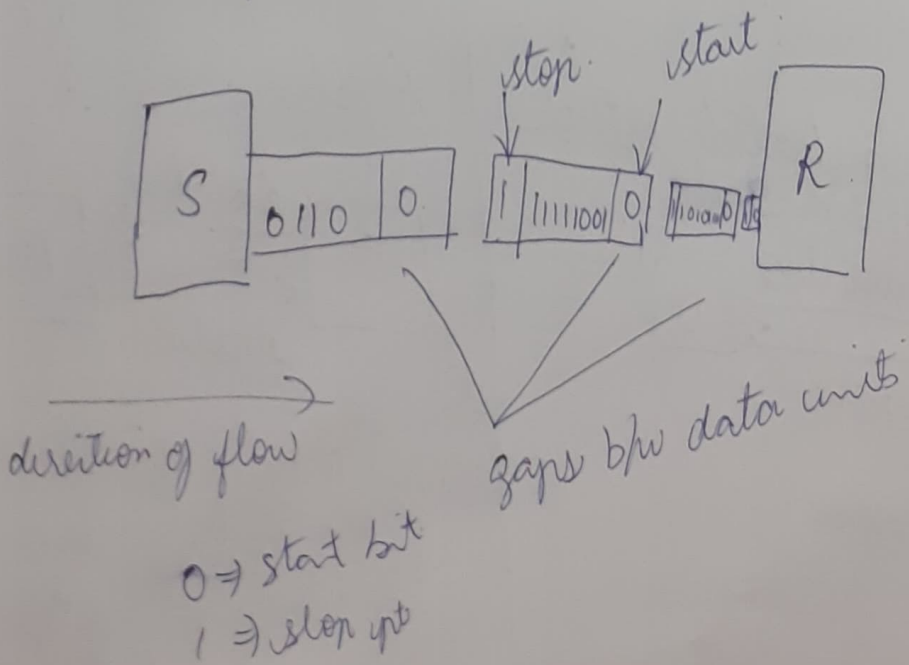 stop
start
S
0110
0
1
11111001
0
R
direction of flow
gaps b/w data units
0 ⇒ start bit
1 ⇒ stop